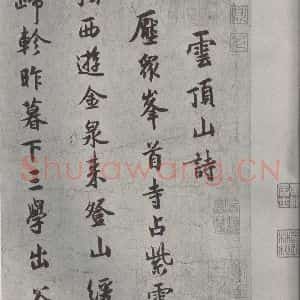 雲頂山詩
壓衆峯首寺占紫雲
西遊金泉來登山
歸軫昨暮下三學出
Shufawang.CN